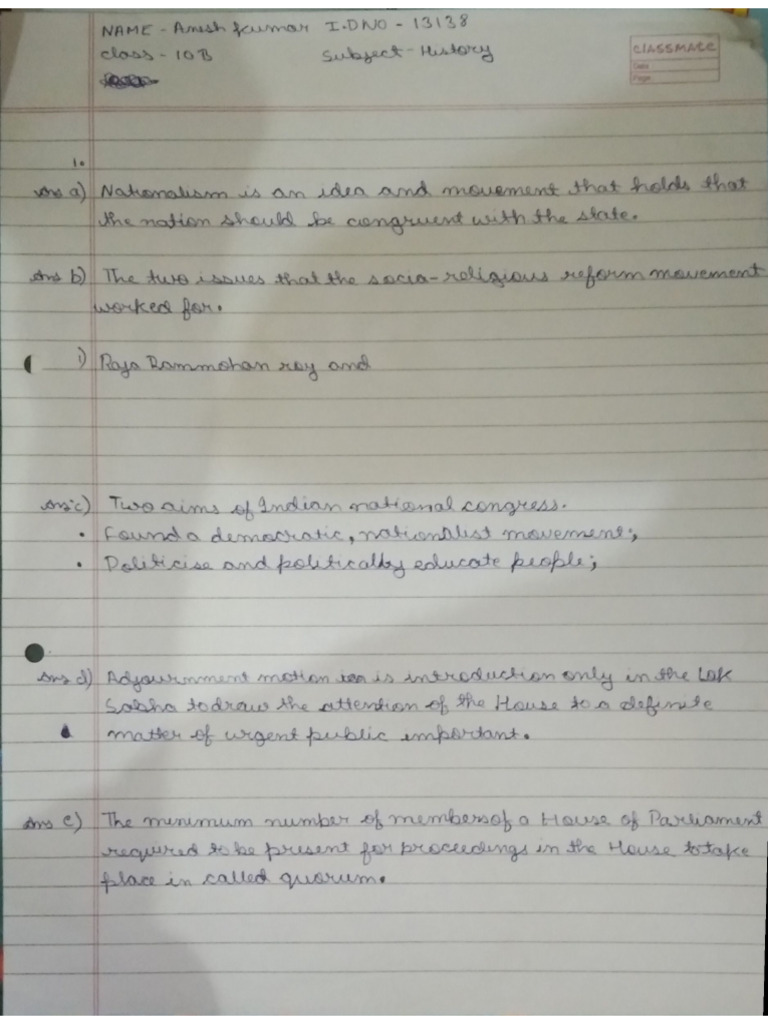 NAME - Anish Kumar I.D NO - 13138
class - 10 B Subject - History
CLASSMATE
Date
Page
1.
Ans a) Nationalism is an idea and movement that holds that
the nation should be congruent with the state.
Ans b) The two issues that the socia-religious reform movement
worked for.
i) Raja Rammohan roy and
Ans c) Two aims of Indian national congress.
• Found a democratic, nationalist movement;
• Politicise and politically educate people;
Ans d) Adjournment motion is introduction only in the Lok
Sabha to draw the attention of the House to a definite
matter of urgent public important.
Ans e) The minimum number of members of a House of Parliament
required to be present for proceedings in the House to take
place in called quorum.